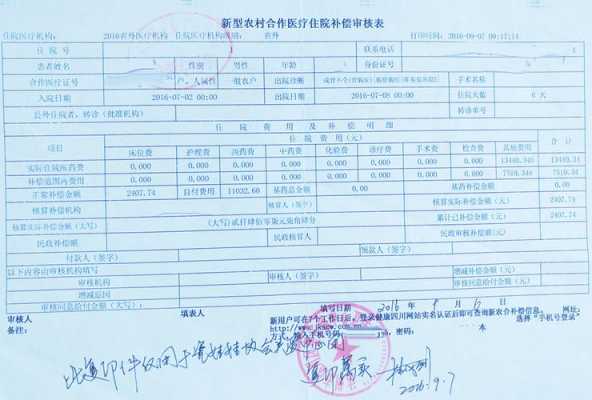 新型农村合作医疗住院补偿审核表
住院医疗机构： 2016省外医疗机构 住院医疗机构级别： 省外 打印时间：2016-09-07 09:17:14
住 院 号 联系电话
患者姓名 性别 男性 年龄 身份证号
合作医疗证号 户、人属性 一般农户 出院诊断 手术名称
入院日期 2016-07-02 00:00 出院日期 2016-07-08 00:00 住院天数 6 天
县外住院者，转诊（批准机构） 转诊单号
住 院 费 用 及 补 偿 明 细
项目 住 院 费 用（元）
床位费 护理费 西药费 中药费 化验费 诊疗费 手术费 检查费 其他费用 合计
实际住院医药费 0.000 0.000 0.000 0.000 0.000 0.000 0.000 0.000 13440.340 13440.34
补偿范围内费用 0.000 0.000 0.000 0.000 0.000 0.000 0.000 0.000 7510.340 7510.34
正常补偿金额 2407.74 自付费用 11032.60 基药总金额 0.00 基药补偿金额 0.00
核算补偿机构 核算人（签字） 核算实际补偿金额（元） 2407.74
核算实际补偿金额（大写） （大写）贰仟肆佰零柒元柒角肆分 累计已补偿金额（元） 2407.74
民政补偿额 民政核算人 民政审核补偿额（元）
付款人（签字） 领款人（签字）
以下内容由审核机构填写
审核机构 审核人（签字） 增减补偿金额（元）
增减原因 审核同意给付金额（元）
审核同意给付金额（大写）：
审核人 填表人 填写日期 2016 年 9 月 6 日
备注： 新用户可在7个工作日后，登录健康四川网站实名认证后即可查询新农合补偿信息。 网址：
选择"手机号登录"
方式，输入手机号码： 密码：
此复印件仅用于
复印属实
2016.9.7